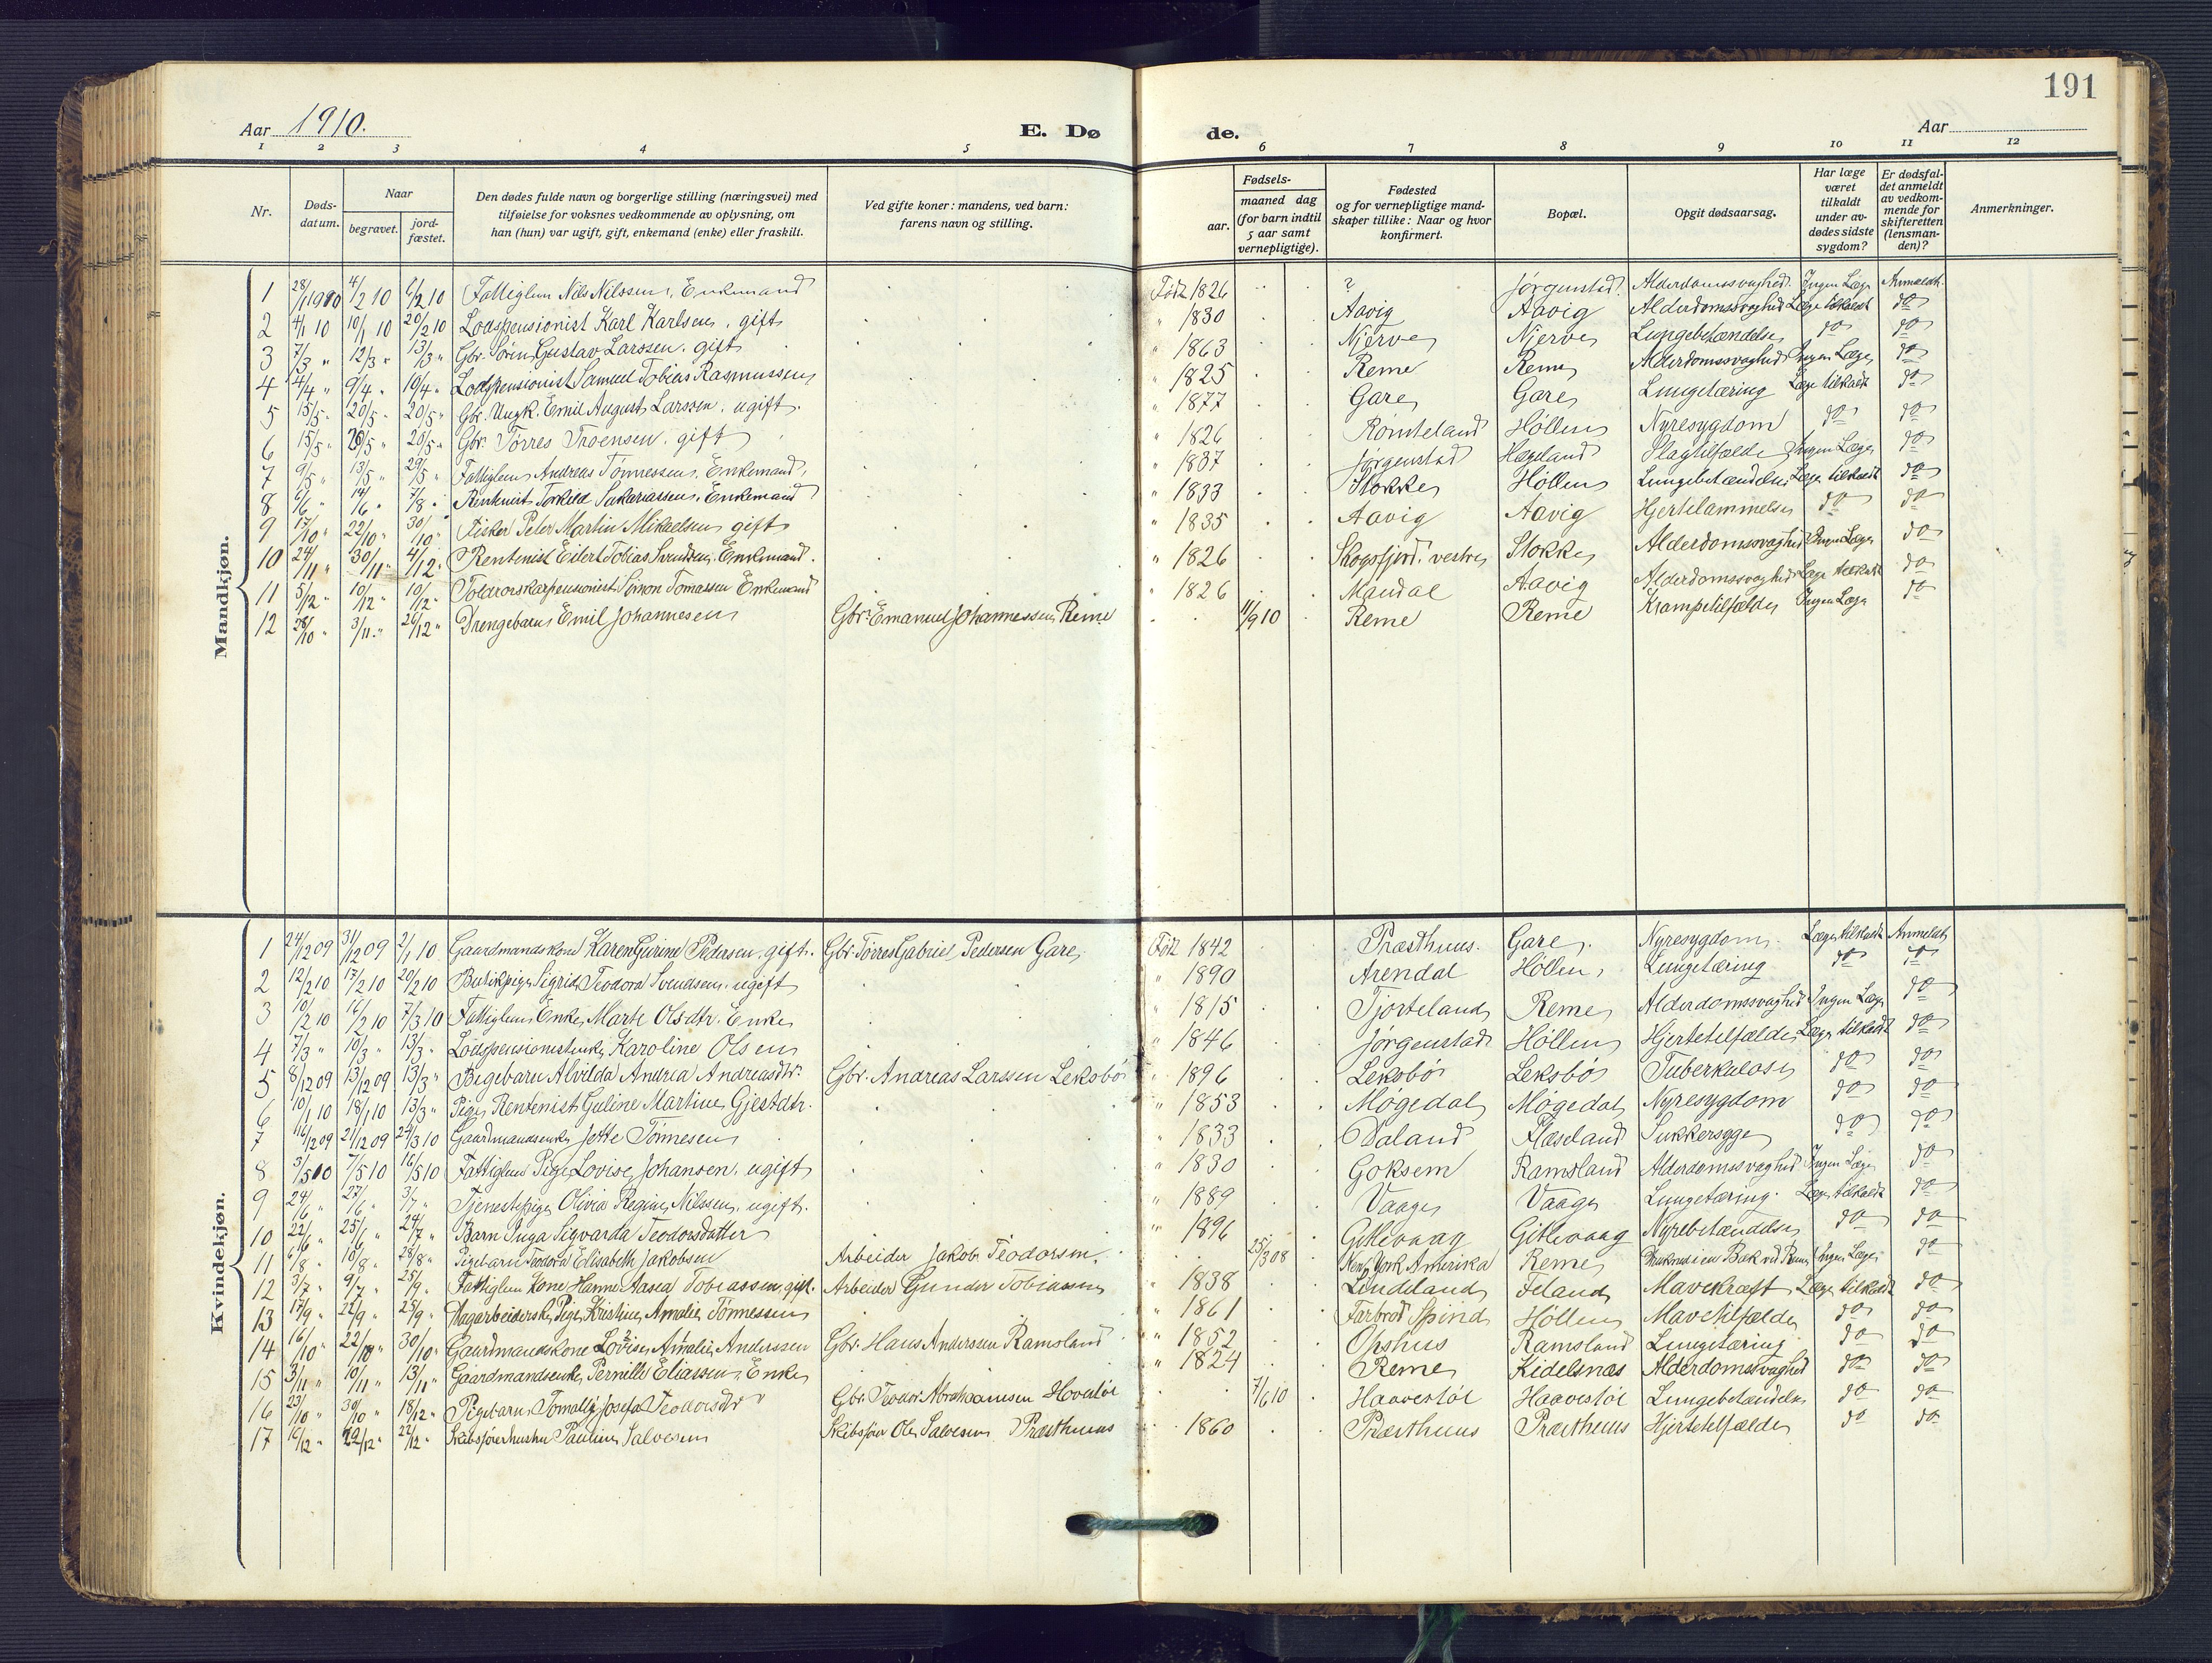 191
Aar 1910.
E. Dø
de.
Aar
1 2 3 4 5 6 7 8 9 10 11 12
Nr.
Døds-datum.
Naar
begravet.
jord-fæstet.
Den dødes fulde navn og borgerlige stilling (næringsvei) med tilføielse for voksnes vedkommende av oplysning, om han (hun) var ugift, gift, enkemand (enke) eller fraskilt.
Ved gifte koner: mandens, ved barn: farens navn og stilling.
Fødsels-
aar.
maaned dag (for barn indtil 5 aar samt vernepligtige).
Fødested og for vernepligtige mand-skaper tillike: Naar og hvor konfirmert.
Bopæl.
Opgit dødsaarsag.
Har læge været tilkaldt under av-dødes sidste sygdom?
Er dødsfal-det anmeldt av vedkom-mende for skifteretten (lensman-den)?
Anmerkninger.
Mandkjøn.
1 28/1 1910 4/2 10 6/2 10 Fattiglem Nils Nilssen, Enkemand Født 1826 ? Jørgenstad. Alderdomssvaghed. Ingen Læge Anmeldt.
2 4/1 10 10/1 10 20/2 10 Lodspensionist Karl Karlsen, gift " 1830 Aavig Aavig Alderdomssvaghed Læge tilkaldt do
3 7/3 " 12/3 " 13/3 " Gbr. Søren Gustav Larssen. gift " 1863 Njerve Njerve Lungebetændelse do do
4 4/4 " 9/4 " 10/4 " Lodspensionist Samuel Tobias Rasmussen " 1825 Reme Reme Alderdomssvaghed Ingen Læge do
5 15/5 " 20/5 " 20/5 " Gbr. Ungk. Emil August Larssen. ugift. " 1877 Gare Gare Lungetæring Læge tilkaldt do
6 15/5 " 20/5 " 20/5 " Gbr. Tørres Troensen. gift " 1826 Romteland Høllen Nyresygdom do do
7 9/5 " 13/5 " 29/5 " Fattiglem Andreas Tønnessen, Enkemand, " 1837 Jørgenstad Hægeland Slagtilfælde Ingen Læge do
8 6/6 " 14/6 " 7/8 " Rentenist Torkild Sakariassen, Enkemand " 1833 Stokke Høllen Lungebetændelse Læge tilkaldt do
9 17/10 " 22/10 " 30/10 " Fisker Peter Martin Mikaelsen gift " 1835 Aavig Aavig Hjertelammelse do do
10 24/11 " 30/11 " 4/12 " Rentenist Eilert Tobias Svendsen, Enkemand. " 1826 Skogsfjord. vestre Stokke Alderdomssvaghed Ingen Læge do
11 5/12 " 10/12 " 10/12 " Toldrorskarpensionist Simon Tomassen Enkemand " 1826 Mandal Aavig Alderdomssvaghed Læge tilkaldt do
12 28/10 " 3/11 " 26/12 " Drengebarn Emil Johannesen Gbr. Emanuel Johannessen Reme 11/9 10 Reme Reme Krampetilfælde Ingen Læge do
Kvindekjøn.
1 24/12 09 31/12 09 2/1 10 Gaardmandskone Karen Gurine Pedersen, gift. Gbr. Tørres Gabriel Pedersen Gare Født 1842 Præsthuus. Gare. Nyresygdom. Læge tilkaldt Anmeldt
2 12/2 10 17/2 10 20/2 10 Butikpige Sigrid Teodora Svendsen, ugift " 1890 Arendal Høllen Lungetæring do do
3 10/2 10 16/2 10 7/3 10 Fattiglem Enke Marte Olsdtr. Enke " 1815 Tjorteland Reme Alderdomssvaghed Ingen Læge do
4 7/3 " 10/3 " 13/3 " Lodspensionistenke Karoline Olsen " 1846 Jørgenstad Høllen Hjertetilfælde Læge tilkaldt do
5 8/12 09 13/12 09 13/3 " Pigebarn Alvilda Andrea Andreasdtr. Gbr. Andreas Larssen Leksbø " 1896 Leksbø Leksbø Tuberkulose do do
6 10/1 10 18/1 10 13/3 " Pige Rentenist Guline Martine Gjestdtr. " 1853 Møgedal Møgedal Nyresygdom do do
7 16/12 09 21/12 09 24/3 10 Gaardmandsenke Jette Tønnesen " 1833 Daland Flaseland Sukkersyge do do
8 3/5 10 7/5 10 16/5 10 Fattiglem Pige Lovise Johansen, ugift " 1830 Goksem Ramsland Alderdomssvaghed Ingen Læge do
9 24/6 " 27/6 " 3/7 " Tjenestepige Olivia Regine Nilssen, ugift. " 1889 Vaage Vaage Lungetæring. Læge tilkaldt do
10 22/6 " 25/6 " 24/7 " Barn Inga Sigvarda Teodorsdatter " 1896 Gitlevaag Gitlevaag Nyrebetændelse do do
11 6/8 " 10/8 " 28/8 " Pigebarn Teodora Elisabeth Jakobsen Arbeider Jakob Teodorsen. 25/3 08 New York Amerika Reme Druknet i en Bæk ved Reme Ingen Læge do
12 3/7 " 9/7 " 25/9 " Fattiglem Kone Hanne Aasea Tobiassen, gift. Arbeider Gunder Tobiassen " 1838 Lindland Feland Mavekræft Læge tilkaldt do
13 17/9 " 22/9 " 25/9 " Dagarbeiderske Pige Kristine Amalie Tønnessen " 1861 Farbrot Spind Høllen Mavetilfælde do do
14 16/10 " 22/10 " 30/10 " Gaardmandskone Lovise Amalie Anderssen Gbr. Hans Anderssen Ramsland " 1852 Opshus Ramsland Lungetæring do do
15 3/11 " 10/11 " 13/11 " Gaardmandsenke Pernille Eliassen, Enke " 1824 Reme Kidelsnæs Alderdomssvaghed do do
16 23/10 " 30/10 " 18/12 " Pigebarn Tomally Josefa Teodorsdtr Gbr. Teodor Abrahamsen Hovestøl 7/6 10 Haavestøl Haavestøl Lungebetændelse do do
17 16/12 " 22/12 " 22/12 " Skibsførerhustru Pauline Salvesen Skibsfører Ole Salvesen Præsthuus 1860 Præsthuus Præsthuus Hjertetilfælde do do